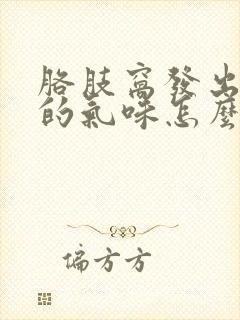 胳肢窩發出
的氣味怎麼
偏方方